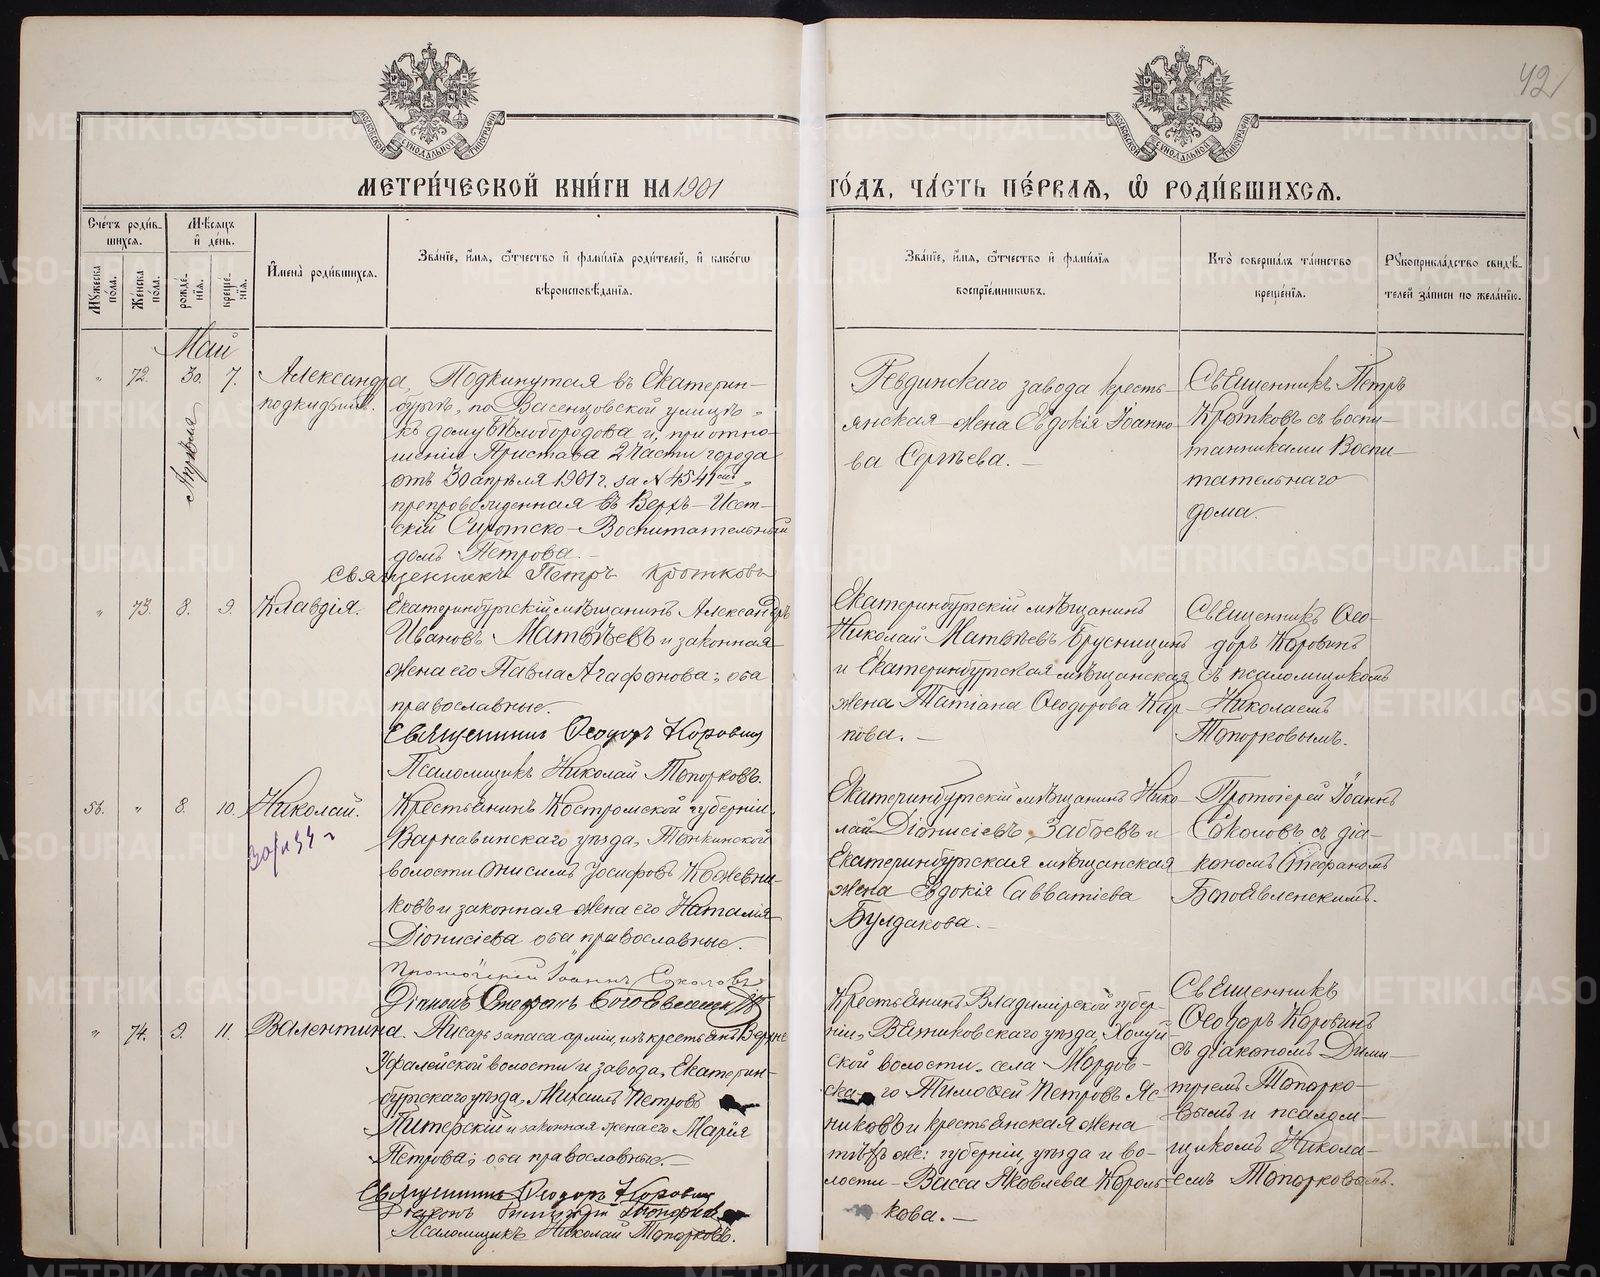 42
МЕТРИ́ЧЕСКОЙ КНИ́ГИ НА 1901
ГО́ДЪ, ЧА́СТЬ ПЕ́РВАЯ, Ѡ҆ РОДИ́ВШИХСЯ.
Сче́тъ роди́в-
шихся.
Мѣ́сяцъ
и҆ де́нь.
Мꙋ́жеска по́ла.
Же́нска по́ла.
рожде́-
нїя.
креще́-
нїя.
И҆мена̀ роди́вшихся.
Зва́нїе, и҆́мя, ѻ҆́тчество и҆ фами́лїя роди́телей, и҆ како́гѡ
вѣроисповѣ́данїя.
Зва́нїе, и҆́мя, ѻ҆́тчество и҆ фами́лїя
воспрїе́мникѡвъ.
Кто̀ соверша́лъ та́инство
креще́нїя.
Рꙋкоприкла́дство свидѣ́-
телей за́писи по жела́нїю.
Май
" 72. 30. 7. Александра,
подкидыш.
Апрѣля
Подкинутая въ Екатерин-
бургѣ, по Васенцовской улицѣ,
къ дому Бѣлобородова и, при отно-
шеніи Пристава 2 части города
отъ 30 апрѣля 1901 г. за № 4541
препровожденная въ Верхъ-Исет-
скій Сиротско-Воспитательный
домъ Петрова. -
Священникъ Петръ Кротковъ
Ревдинскаго завода кресть-
янская жена Евдокія Іоанно-
ва Сергѣева. -
Священникъ Петръ
Кротковъ съ воспи-
танниками Воспи-
тательнаго
дома.
" 73. 8. 9. Клавдія.
Екатеринбургскій мѣщанинъ Александръ
Ивановъ Матвѣевъ и законная
жена его Павла Агафонова; оба
православные.
Священникъ Ѳеодоръ Коровинъ
Псаломщикъ Николай Топорковъ.
Екатеринбургскій мѣщанинъ
Николай Матвѣевъ Брусницынъ
и Екатеринбургская мѣщанская
жена Татіана Ѳеодорова Кар-
пова. -
Священникъ Ѳео-
доръ Коровинъ
съ псаломщикомъ
Николаемъ
Топорковымъ.
56. " 8. 10. Николай.
Крестьянинъ Костромской губерніи,
Варнавинскаго уѣзда, Тонкинской
волости Онисимъ Іосифовъ Кожевни-
ковъ и законная жена его Наталія
Діонисіева оба православные.
Протоіерей Іоаннъ Соколовъ
Діаконъ Стефанъ Богоявленскій
Екатеринбургскій мѣщанинъ Нико-
лай Діонисіевъ Забаевъ и
Екатеринбургская мѣщанская
жена Евдокія Савватіева
Булдакова. -
Протоіерей Іоаннъ
Соколовъ съ діа-
кономъ Стефаномъ
Богоявленскимъ.
" 74. 9. 11. Валентина.
Писарь запаса арміи, изъ крестьянъ Верхне-
Уфалейской волости и завода, Екатерин-
бургскаго уѣзда, Михаилъ Петровъ
Питерскій и законная жена его Марія
Петрова; оба православные. -
Священникъ Ѳеодоръ Коровинъ
Діаконъ Димитрій Топорковъ
Псаломщикъ Николай Топорковъ.
Крестьянинъ Владимірской губер-
ніи, Вязниковскаго уѣзда, Холуй-
ской волости, села Мордов-
скаго Тимоѳей Петровъ Яс-
никовъ и крестьянская жена
тѣхъ же: губерніи, уѣзда и во-
лости - Васса Яковлева Король-
кова. -
Священникъ
Ѳеодоръ Коровинъ
съ діакономъ Дими-
тріемъ Топорко-
вымъ и псалом-
щикомъ Никола-
емъ Топорковымъ.